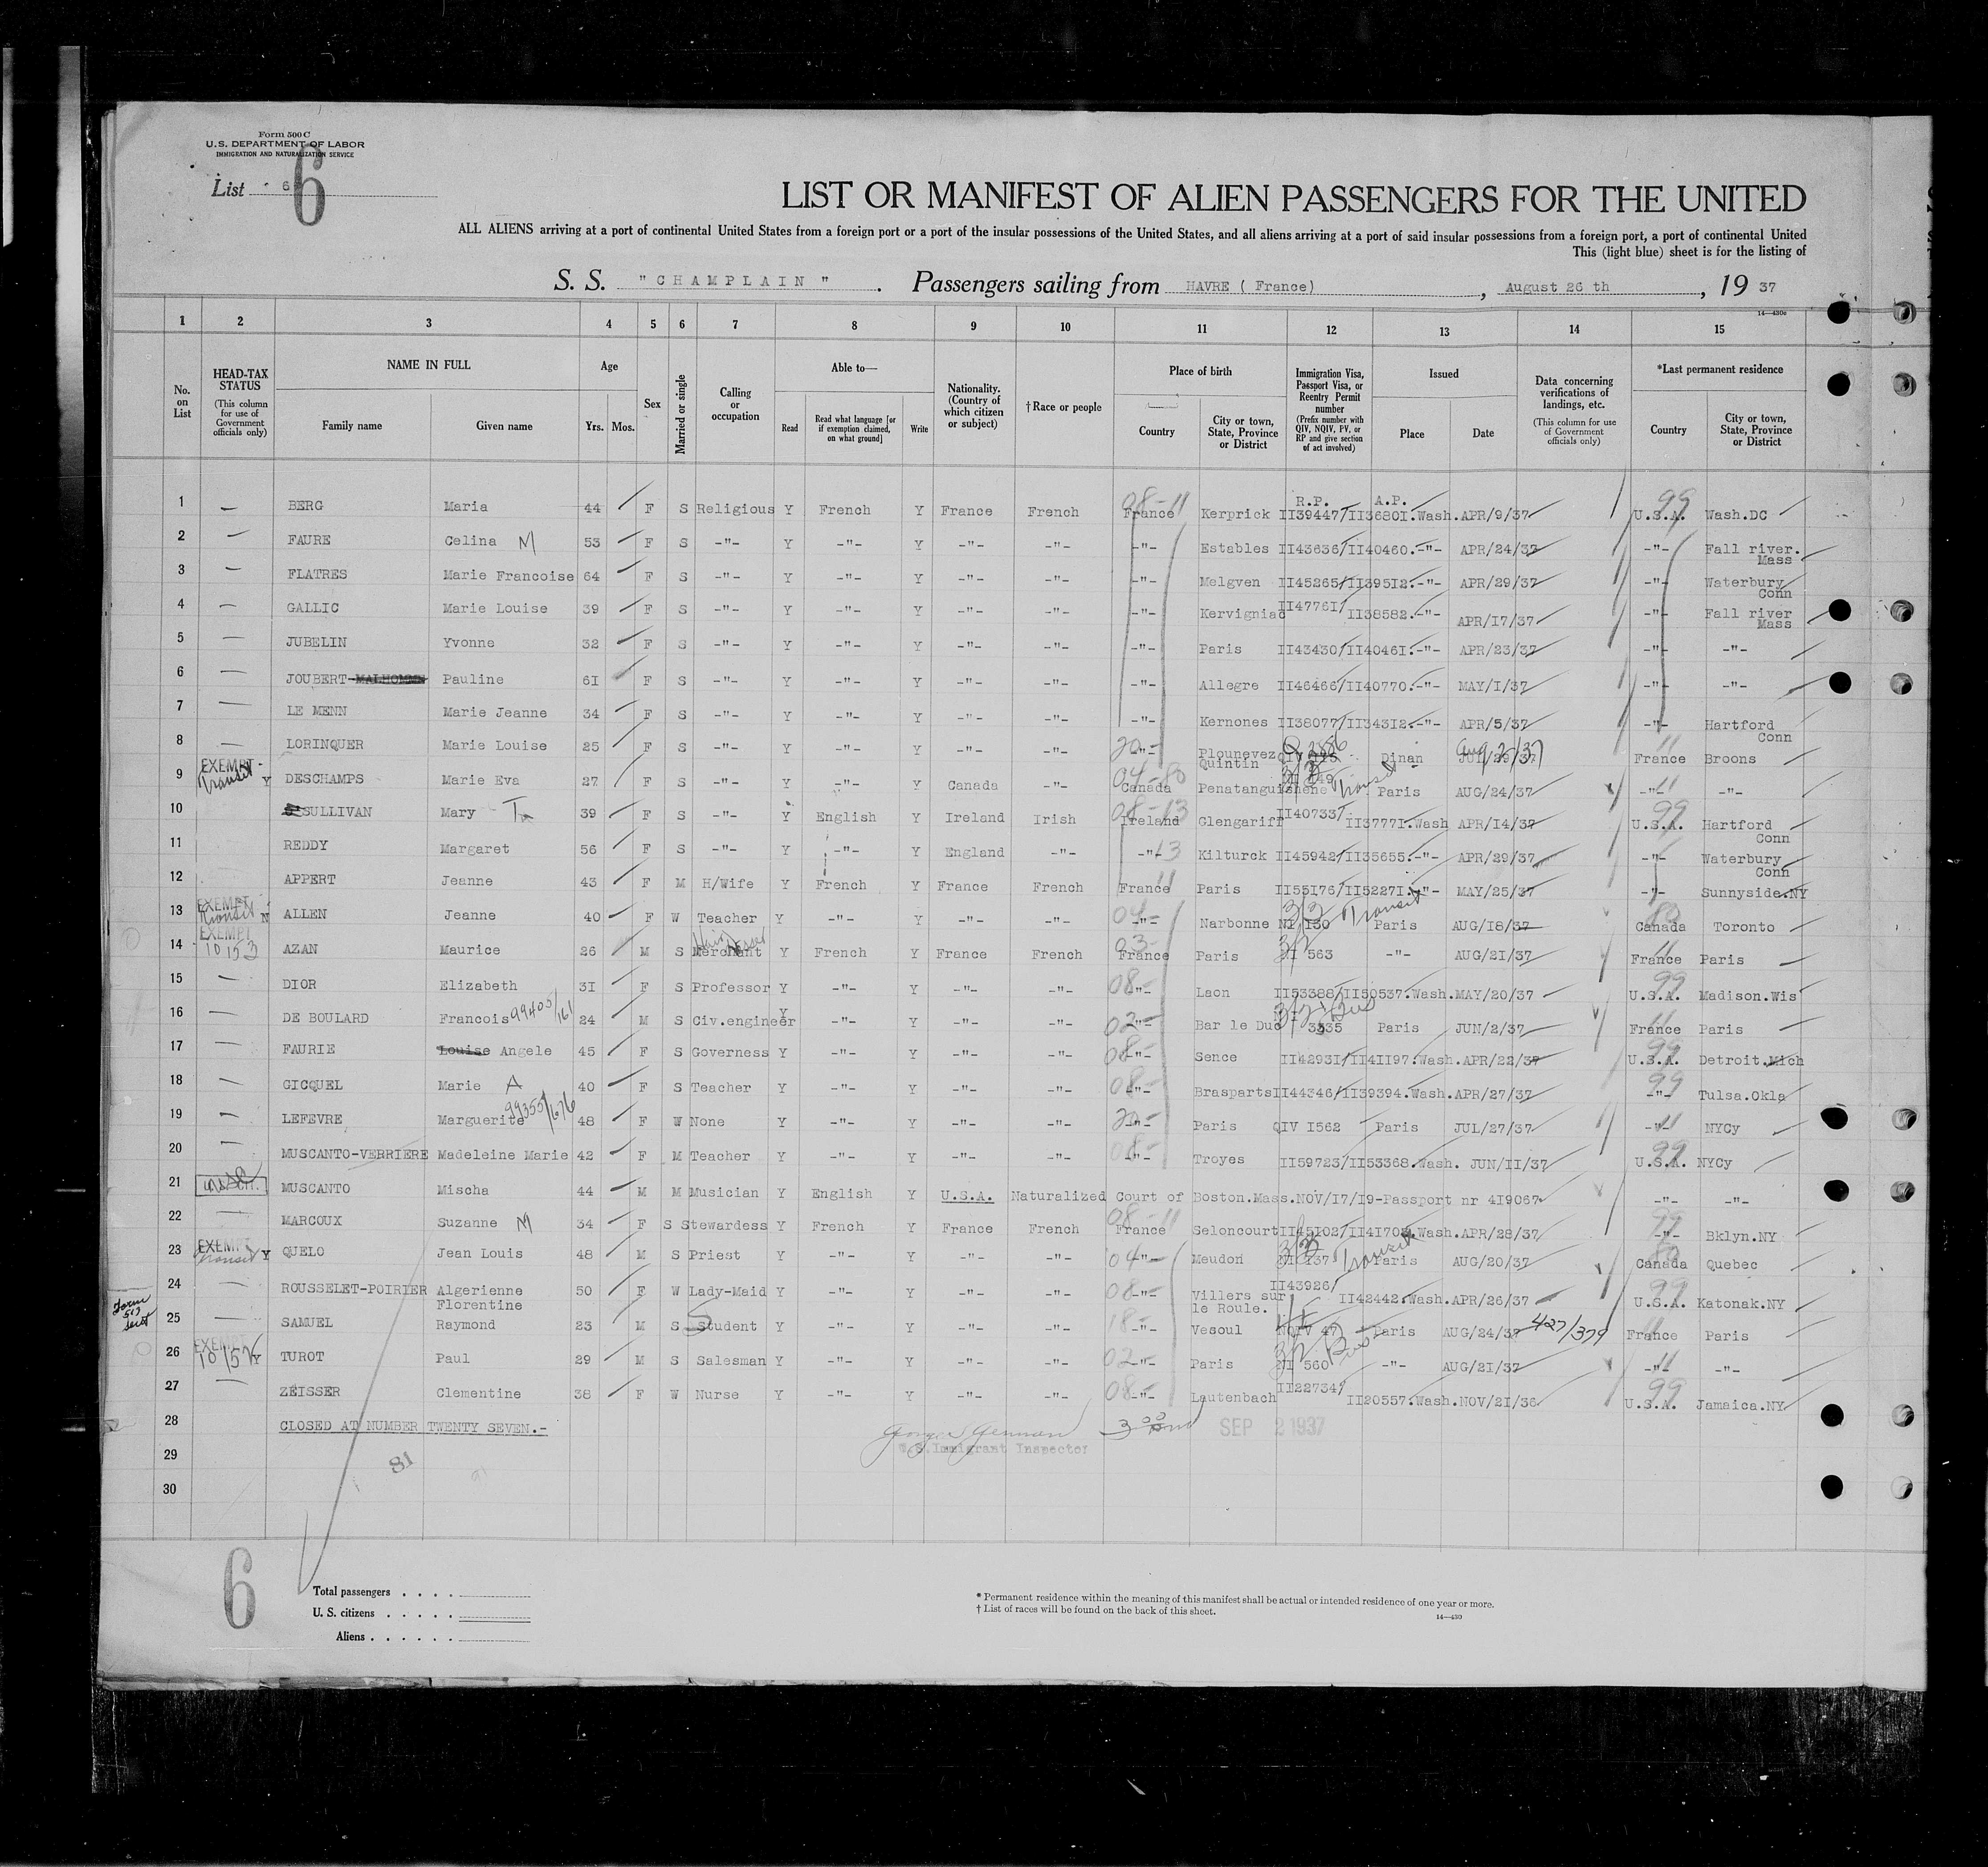 Form 500 C
U.S. DEPARTMENT OF LABOR
IMMIGRATION AND NATURALIZATION SERVICE
List 6
6
LIST OR MANIFEST OF ALIEN PASSENGERS FOR THE UNITED
ALL ALIENS arriving at a port of continental United States from a foreign port or a port of the insular possessions of the United States, and all aliens arriving at a port of said insular possessions from a foreign port, a port of continental United
This (light blue) sheet is for the listing of
S. S. "CHAMPLAIN". Passengers sailing from HAVRE ( France), August 26 th, 19 37
14—430c
1 2 3 4 5 6 7 8 9 10 11 12 13 14 15
No. on List
HEAD-TAX STATUS (This column for use of Government officials only)
NAME IN FULL Family name Given name
Age Yrs. Mos.
Sex
Married or single
Calling or occupation
Able to— Read Read what language [or if exemption claimed, on what ground] Write
Nationality. (Country of which citizen or subject)
† Race or people
Place of birth Country City or town, State, Province or District
Immigration Visa, Passport Visa, or Reentry Permit number (Prefix number with QIV, NQIV, PV, or RP and give section of act involved)
Issued Place Date
Data concerning verifications of landings, etc. (This column for use of Government officials only)
*Last permanent residence Country City or town, State, Province or District
1 — BERG Maria 44 F S Religious Y French Y France French 08-11 France Kerprick R.P. II39447/II36801. A.P. Wash. APR/9/37 99 U.S.A. Wash.DC
2 — FAURE Celina M 53 F S -"- Y -"- Y -"- -"- -"- Estables II43636/II40460. -"- APR/24/37 -"- Fall river. Mass
3 — FLATRES Marie Francoise 64 F S -"- Y -"- Y -"- -"- -"- Melgven II45265/II39512. -"- APR/29/37 -"- Waterbury Conn
4 — GALLIC Marie Louise 39 F S -"- Y -"- Y -"- -"- -"- Kervigniac II47761/II38582. -"- APR/17/37 -"- Fall river Mass
5 — JUBELIN Yvonne 32 F S -"- Y -"- Y -"- -"- -"- Paris II43430/II40461. -"- APR/23/37 -"- -"-
6 — JOUBERT Pauline 61 F S -"- Y -"- Y -"- -"- -"- Allegre II46466/II40770. -"- MAY/1/37 -"- -"-
7 — LE MENN Marie Jeanne 34 F S -"- Y -"- Y -"- -"- -"- Kernones II38077/II34312. -"- APR/5/37 -"- Hartford Conn
8 — LORINQUER Marie Louise 25 F S -"- Y -"- Y -"- -"- 20- -"- Plounevez Quintin Dinan Aug/2/37 11 France Broons
9 EXEMPT - Transit Y DESCHAMPS Marie Eva 27 F S -"- Y -"- Y Canada -"- 04-80 Canada Penatanguishene Transit Paris AUG/24/37 -"- 11 -"-
10 SULLIVAN Mary 39 F S -"- Y English Y Ireland Irish 08-13 Ireland Glengariff II40733/II37771. Wash APR/14/37 99 U.S.A. Hartford Conn
11 REDDY Margaret 56 F S -"- Y -"- Y England -"- -"- 13 Kilturck II45942/II35655. -"- APR/29/37 -"- Waterbury Conn
12 APPERT Jeanne 43 F M H/Wife Y French Y France French France 11 Paris II55176/II52271. -"- MAY/25/37 -"- Sunnyside.NY
13 EXEMPT Transit N ALLEN Jeanne 40 F W Teacher Y -"- Y -"- -"- 04- -"- Narbonne 3/3 NI 130 Transit Paris AUG/18/37 80 Canada Toronto
14 EXEMPT 10 153 AZAN Maurice 26 M S Hair Dresser Merchant Y French Y France French 03- France Paris 3/2 NI 563 -"- AUG/21/37 11 France Paris
15 — DIOR Elizabeth 31 F S Professor Y -"- Y -"- -"- 08- -"- Laon II53388/II50537. Wash. MAY/20/37 99 U.S.A. Madison.Wis
16 — DE BOULARD Francois 99405/161 24 M S Civ.engineer Y -"- Y -"- -"- 02- -"- Bar le Duc 3/2 Bus 3335 Paris JUN/2/37 11 France Paris
17 — FAURIE Louise Angele 45 F S Governess Y -"- Y -"- -"- 08- -"- Sence II42931/II41197. Wash. APR/22/37 99 U.S.A. Detroit.Mich
18 — GICQUEL Marie A 40 F S Teacher Y -"- Y -"- -"- 08- -"- Brasparts II44346/II39394. Wash. APR/27/37 99 -"- Tulsa.Okla
19 — LEFEVRE Marguerite 99355/676 48 F W None Y -"- Y -"- -"- 20- -"- Paris QIV 1562 Paris JUL/27/37 -"- 11 NYCy
20 — MUSCANTO-VERRIERE Madeleine Marie 42 F M Teacher Y -"- Y -"- -"- 08- -"- Troyes II59723/II53368. Wash. JUN/11/37 99 U.S.A. NYCy
21 MUSCANTO Mischa 44 M M Musician Y English Y U.S.A. Naturalized Court of Boston.Mass.NOV/17/19-Passport nr 419067 -"- -"-
22 — MARCOUX Suzanne M 34 F S Stewardess Y French Y France French 08-11 France Seloncourt II45102/II41702. Wash. APR/28/37 99 -"- Bklyn.NY
23 EXEMPT Transit Y QUELO Jean Louis 48 M S Priest Y -"- Y -"- -"- 04- -"- Meudon 3/3 NI 137 Transit Paris AUG/20/37 80 Canada Quebec
24 — ROUSSELET-POIRIER Algerienne Florentine 50 F W Lady-Maid Y -"- Y -"- -"- 08- -"- Villers sur le Roule. II43926/II42442. Wash. APR/26/37 99 U.S.A. Katonak.NY
Form 517 sent
25 — SAMUEL Raymond 23 M S Student S Y -"- Y -"- -"- 18- -"- Vesoul NQIV 47 Paris AUG/24/37 427/379 11 France Paris
26 EXEMPT 10/57 Y TUROT Paul 29 M S Salesman Y -"- Y -"- -"- 02- -"- Paris 3/2 Bus NI 560 -"- AUG/21/37 -"- 11 -"-
27 — ZEISSER Clementine 38 F W Nurse Y -"- Y -"- -"- 08- -"- Lautenbach II22734/II20557. Wash. NOV/21/36 99 U.S.A. Jamaica.NY
28 CLOSED AT NUMBER TWENTY SEVEN.-
SEP 2 1937
29 U.S. Immigrant Inspector
81
30
6
Total passengers
U. S. citizens
Aliens
* Permanent residence within the meaning of this manifest shall be actual or intended residence of one year or more.
† List of races will be found on the back of this sheet.
14—430